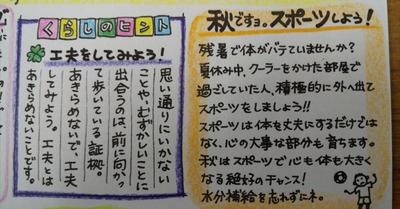 くらしのヒント
工夫をしてみよう！
思い通りにいかない
ことや、むずかしいことに
出合うのは、前に向かっ
て歩いている証拠。
あきらめないで、工夫
してみよう。工夫とは
あきらめないことです。
秋ですョ。スポーツしよう！
残暑で体がバテていませんか？
夏休み中、クーラーをかけた部屋で
過ごしていた人、積極的に外へ出て
スポーツをしましょう!!
スポーツは体を丈夫にするだけでは
なく、心の大事な部分も育ちます。
秋はスポーツで心も体も大きく
なる絶好のチャンス！
水分補給を忘れずにネ。